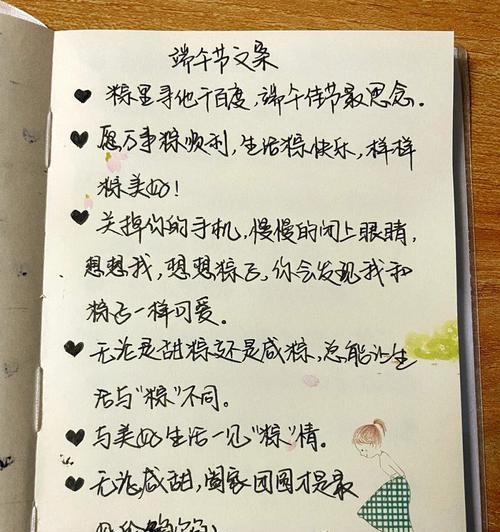 端午节文案
♥ 粽里寻他千百度,端午佳节最思念。
♥ 愿万事粽顺利,生活粽快乐,样样
粽美好!
♥ 关掉你的手机,慢慢的闭上眼睛,
想想我,想想粽子,你会发现我和
粽子一样可爱。
♥ 无论是甜粽还是咸粽,总能让生
活与“粽”不同。
♥ 与美好生活一见“粽”情。
♥ 无论咸甜,阖家团圆才是最